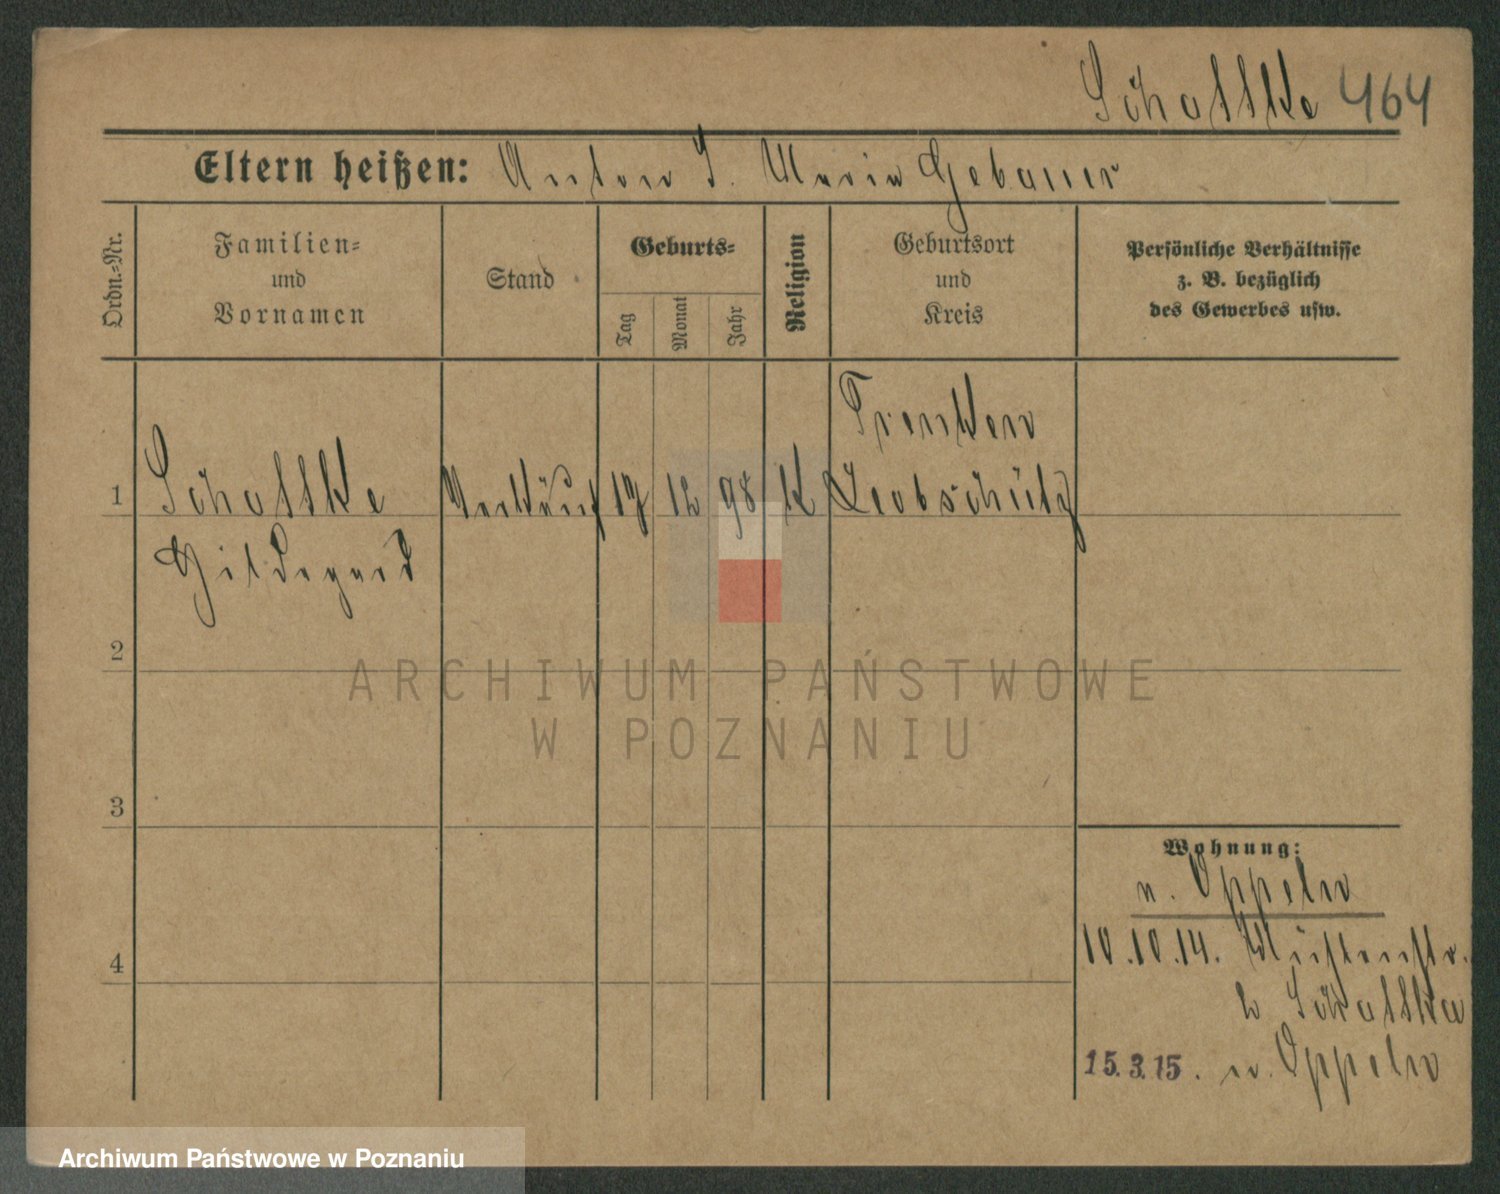 Schottke 464
Eltern heißen: Anton S. Maria Gebauer
Ordn.-Nr.
Familien-
und
Vornamen
Stand
Geburts-
Tag
Monat
Jahr
Religion
Geburtsort
und
Kreis
Persönliche Verhältnisse
z. B. bezüglich
des Gewerbes usw.
Trenkau
1 Schottke Verkäuf 17 12 98 K Leobschütz
Hildegard
2
3
4
Wohnung:
n. Oppeln
10.10.14.
Schottke
15.3.15. n. Oppeln
ARCHIWUM PAŃSTWOWE
W POZNANIU
Archiwum Państwowe w Poznaniu